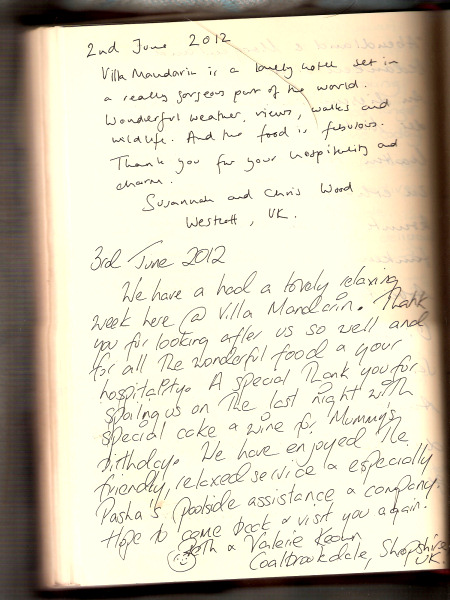 2nd June 2012
Villa Mandarin is a lovely hotel set in
a really gorgeous part of the world.
Wonderful weather, views, walks and
wildlife. And the food is fabulous.
Thank you for your hospitality and
charm.
Susannah and Chris Wood
Westcott, UK.
3rd June 2012
We have a had a lovely relaxing
week here @ Villa Mandarin. Thank
you for looking after us so well and
for all the wonderful food & your
hospitality. A special Thank you for
spoiling us on the last night with
special cake & wine for Mummy's
birthday. We have enjoyed the
friendly, relaxed service & especially
Pasha's poolside assistance & company.
Hope to come back & visit you again.
& Valerie
Coalbrookdale, Shropshire
UK.